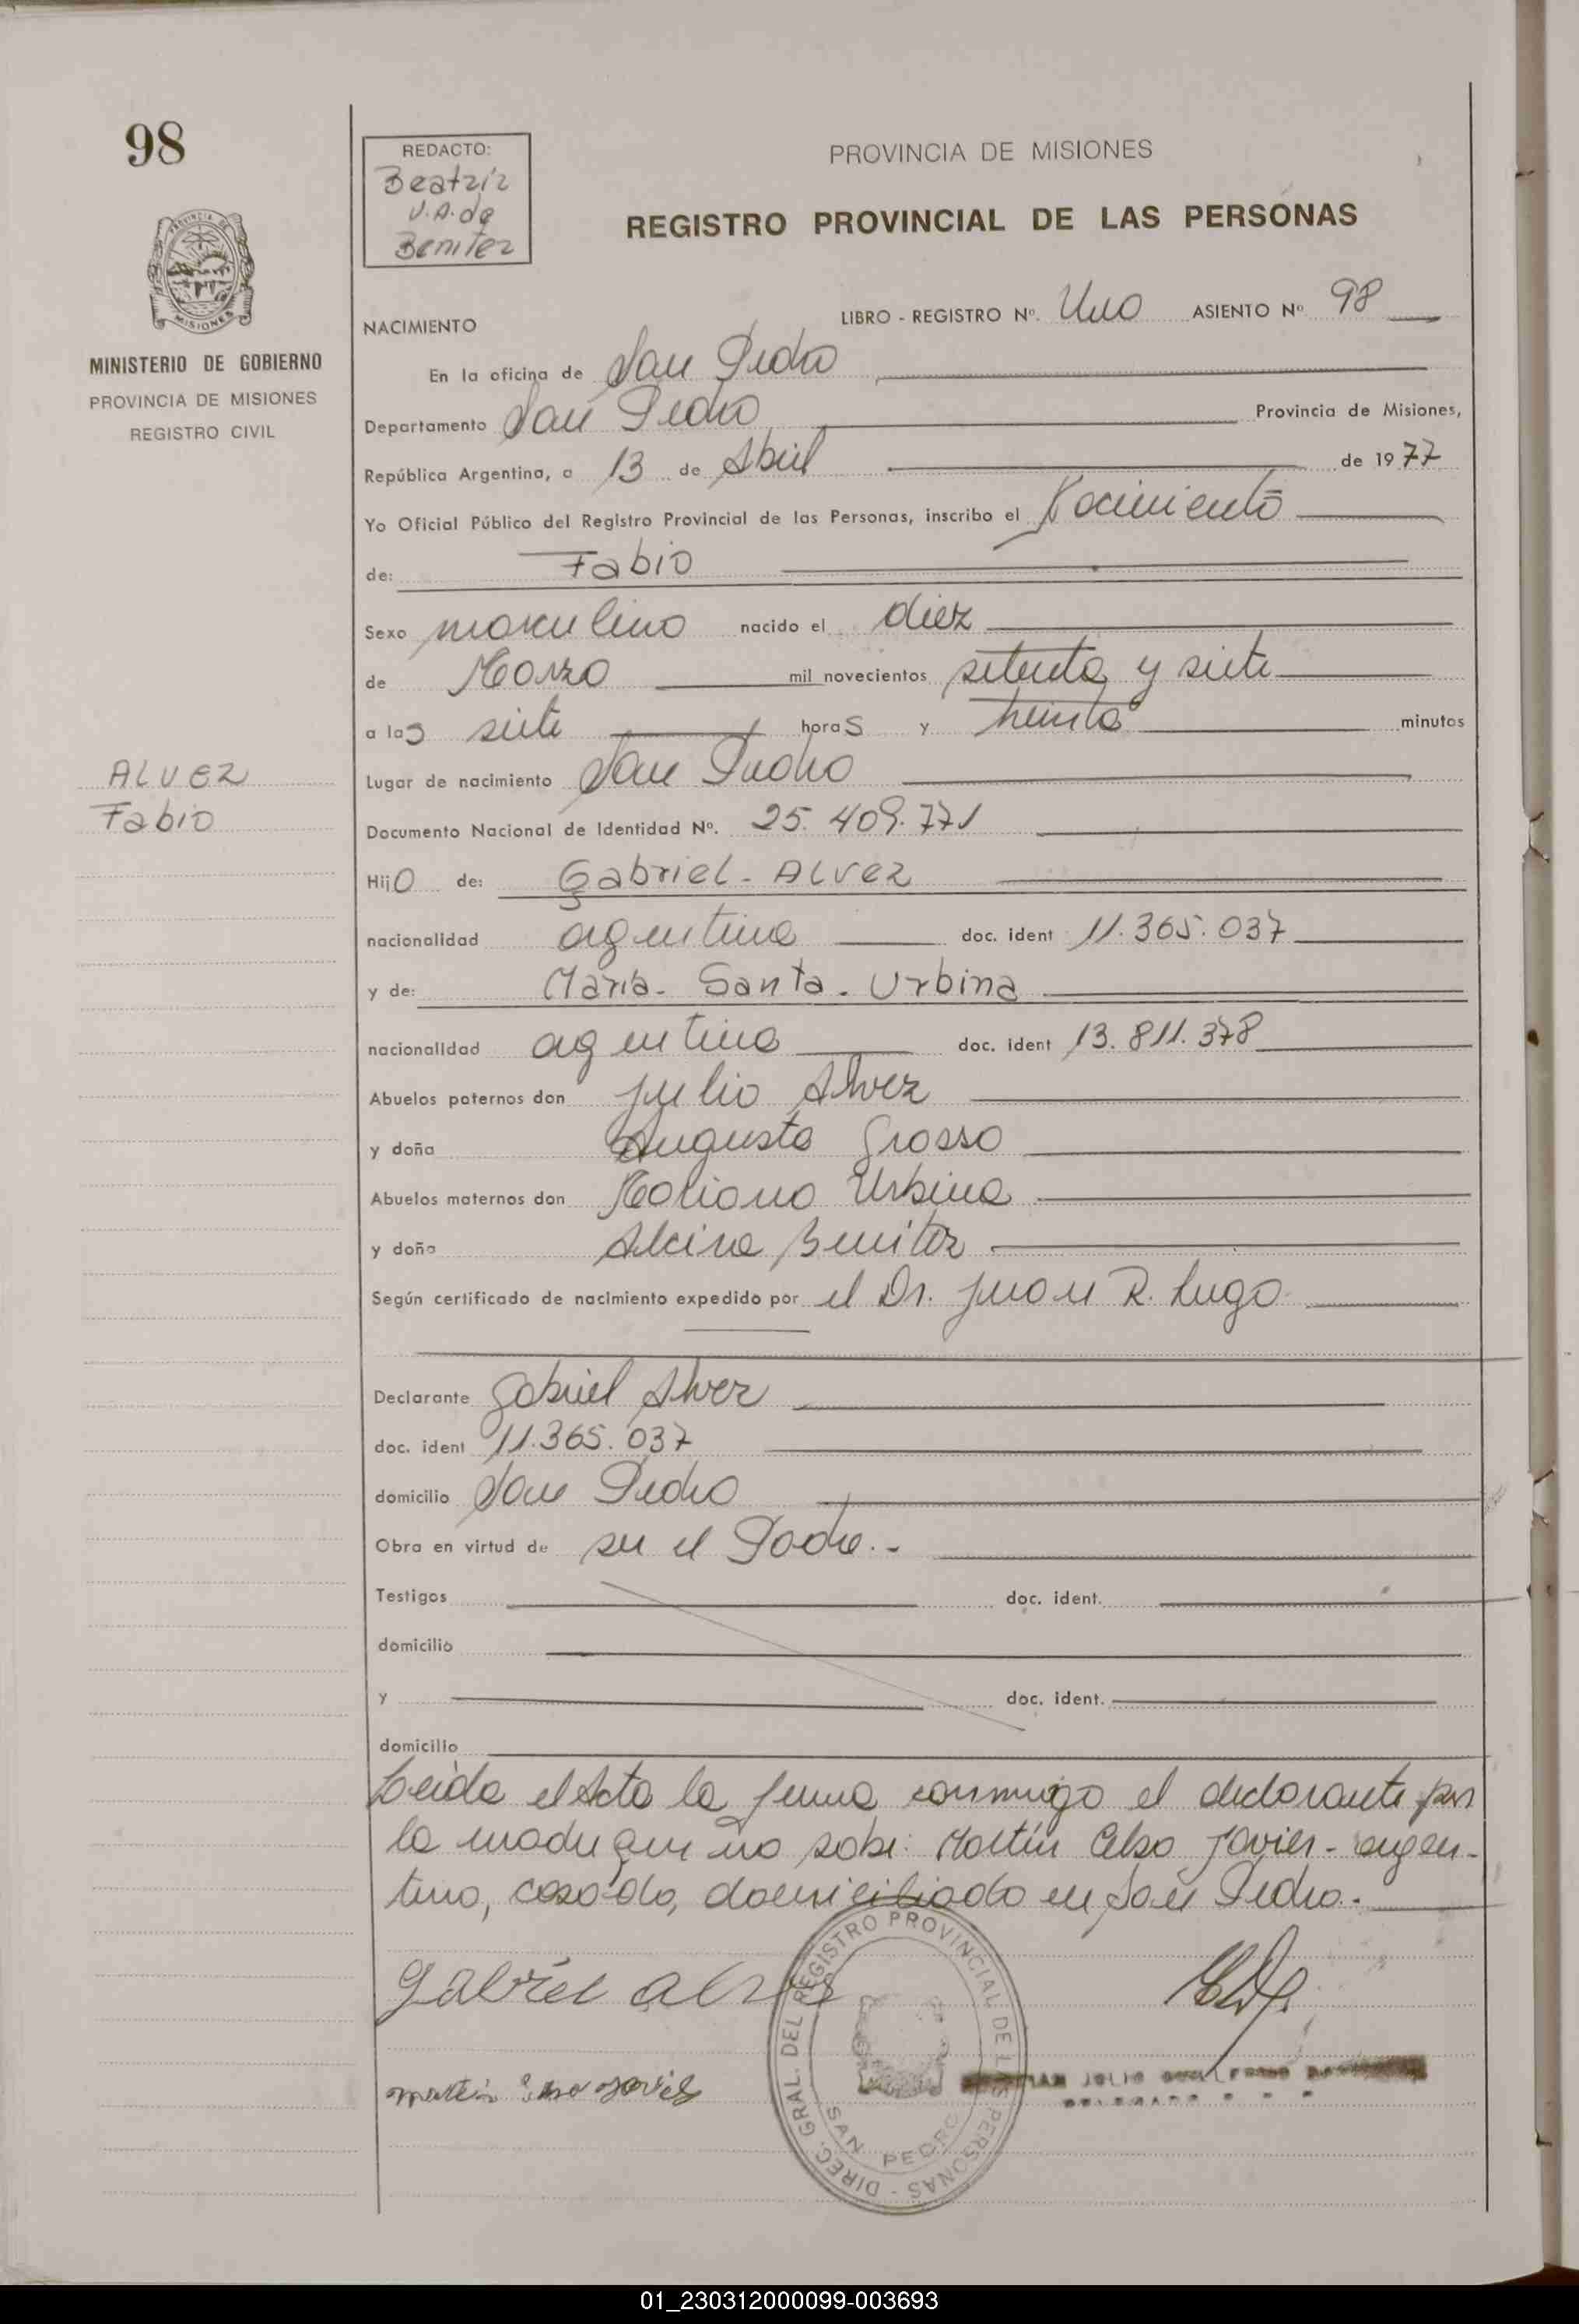 98
REDACTO:
Beatriz
V.A. de
Benitez
PROVINCIA DE MISIONES
REGISTRO PROVINCIAL DE LAS PERSONAS
PROVINCIA DE
MISIONES
MINISTERIO DE GOBIERNO
PROVINCIA DE MISIONES
REGISTRO CIVIL
NACIMIENTO LIBRO - REGISTRO Nº. Uno ASIENTO Nº 98
En la oficina de San Pedro
Departamento San Pedro Provincia de Misiones,
República Argentina, a 13 de Abril de 1977
Yo Oficial Público del Registro Provincial de las Personas, inscribo el Nacimiento
de: Fabio
Sexo masculino nacido el diez
de Marzo mil novecientos setenta y siete
a las siete horas y treinta minutos
ALVEZ
Fabio
Lugar de nacimiento San Pedro
Documento Nacional de Identidad Nº. 25.409.771
Hijo de: Gabriel - ALVEZ
nacionalidad argentina doc. ident 11.365.037
y de: Maria - Santa - Urbina
nacionalidad argentina doc. ident 13.811.378
Abuelos paternos don Julio Alvez
y doña Augusta Grosso
Abuelos maternos don Mariano Urbina
y doña Alcira Benitez
Según certificado de nacimiento expedido por el Dr. Juan R. Lugo
Declarante Gabriel Alvez
doc. ident 11.365.037
domicilio San Pedro
Obra en virtud de ser el Padre.-
Testigos doc. ident.
domicilio
y doc. ident.
domicilio
Leída el Acta la firma conmigo el declarante por
la madre que no sabe: Martín Celso Javier - argen-
tino, casado, domiciliado en San Pedro.-
Gabriel
DIREC. GRAL. DEL REGISTRO PROVINCIAL DE LAS PERSONAS -
SAN PEDRO
JULIO
01_230312000099-003693